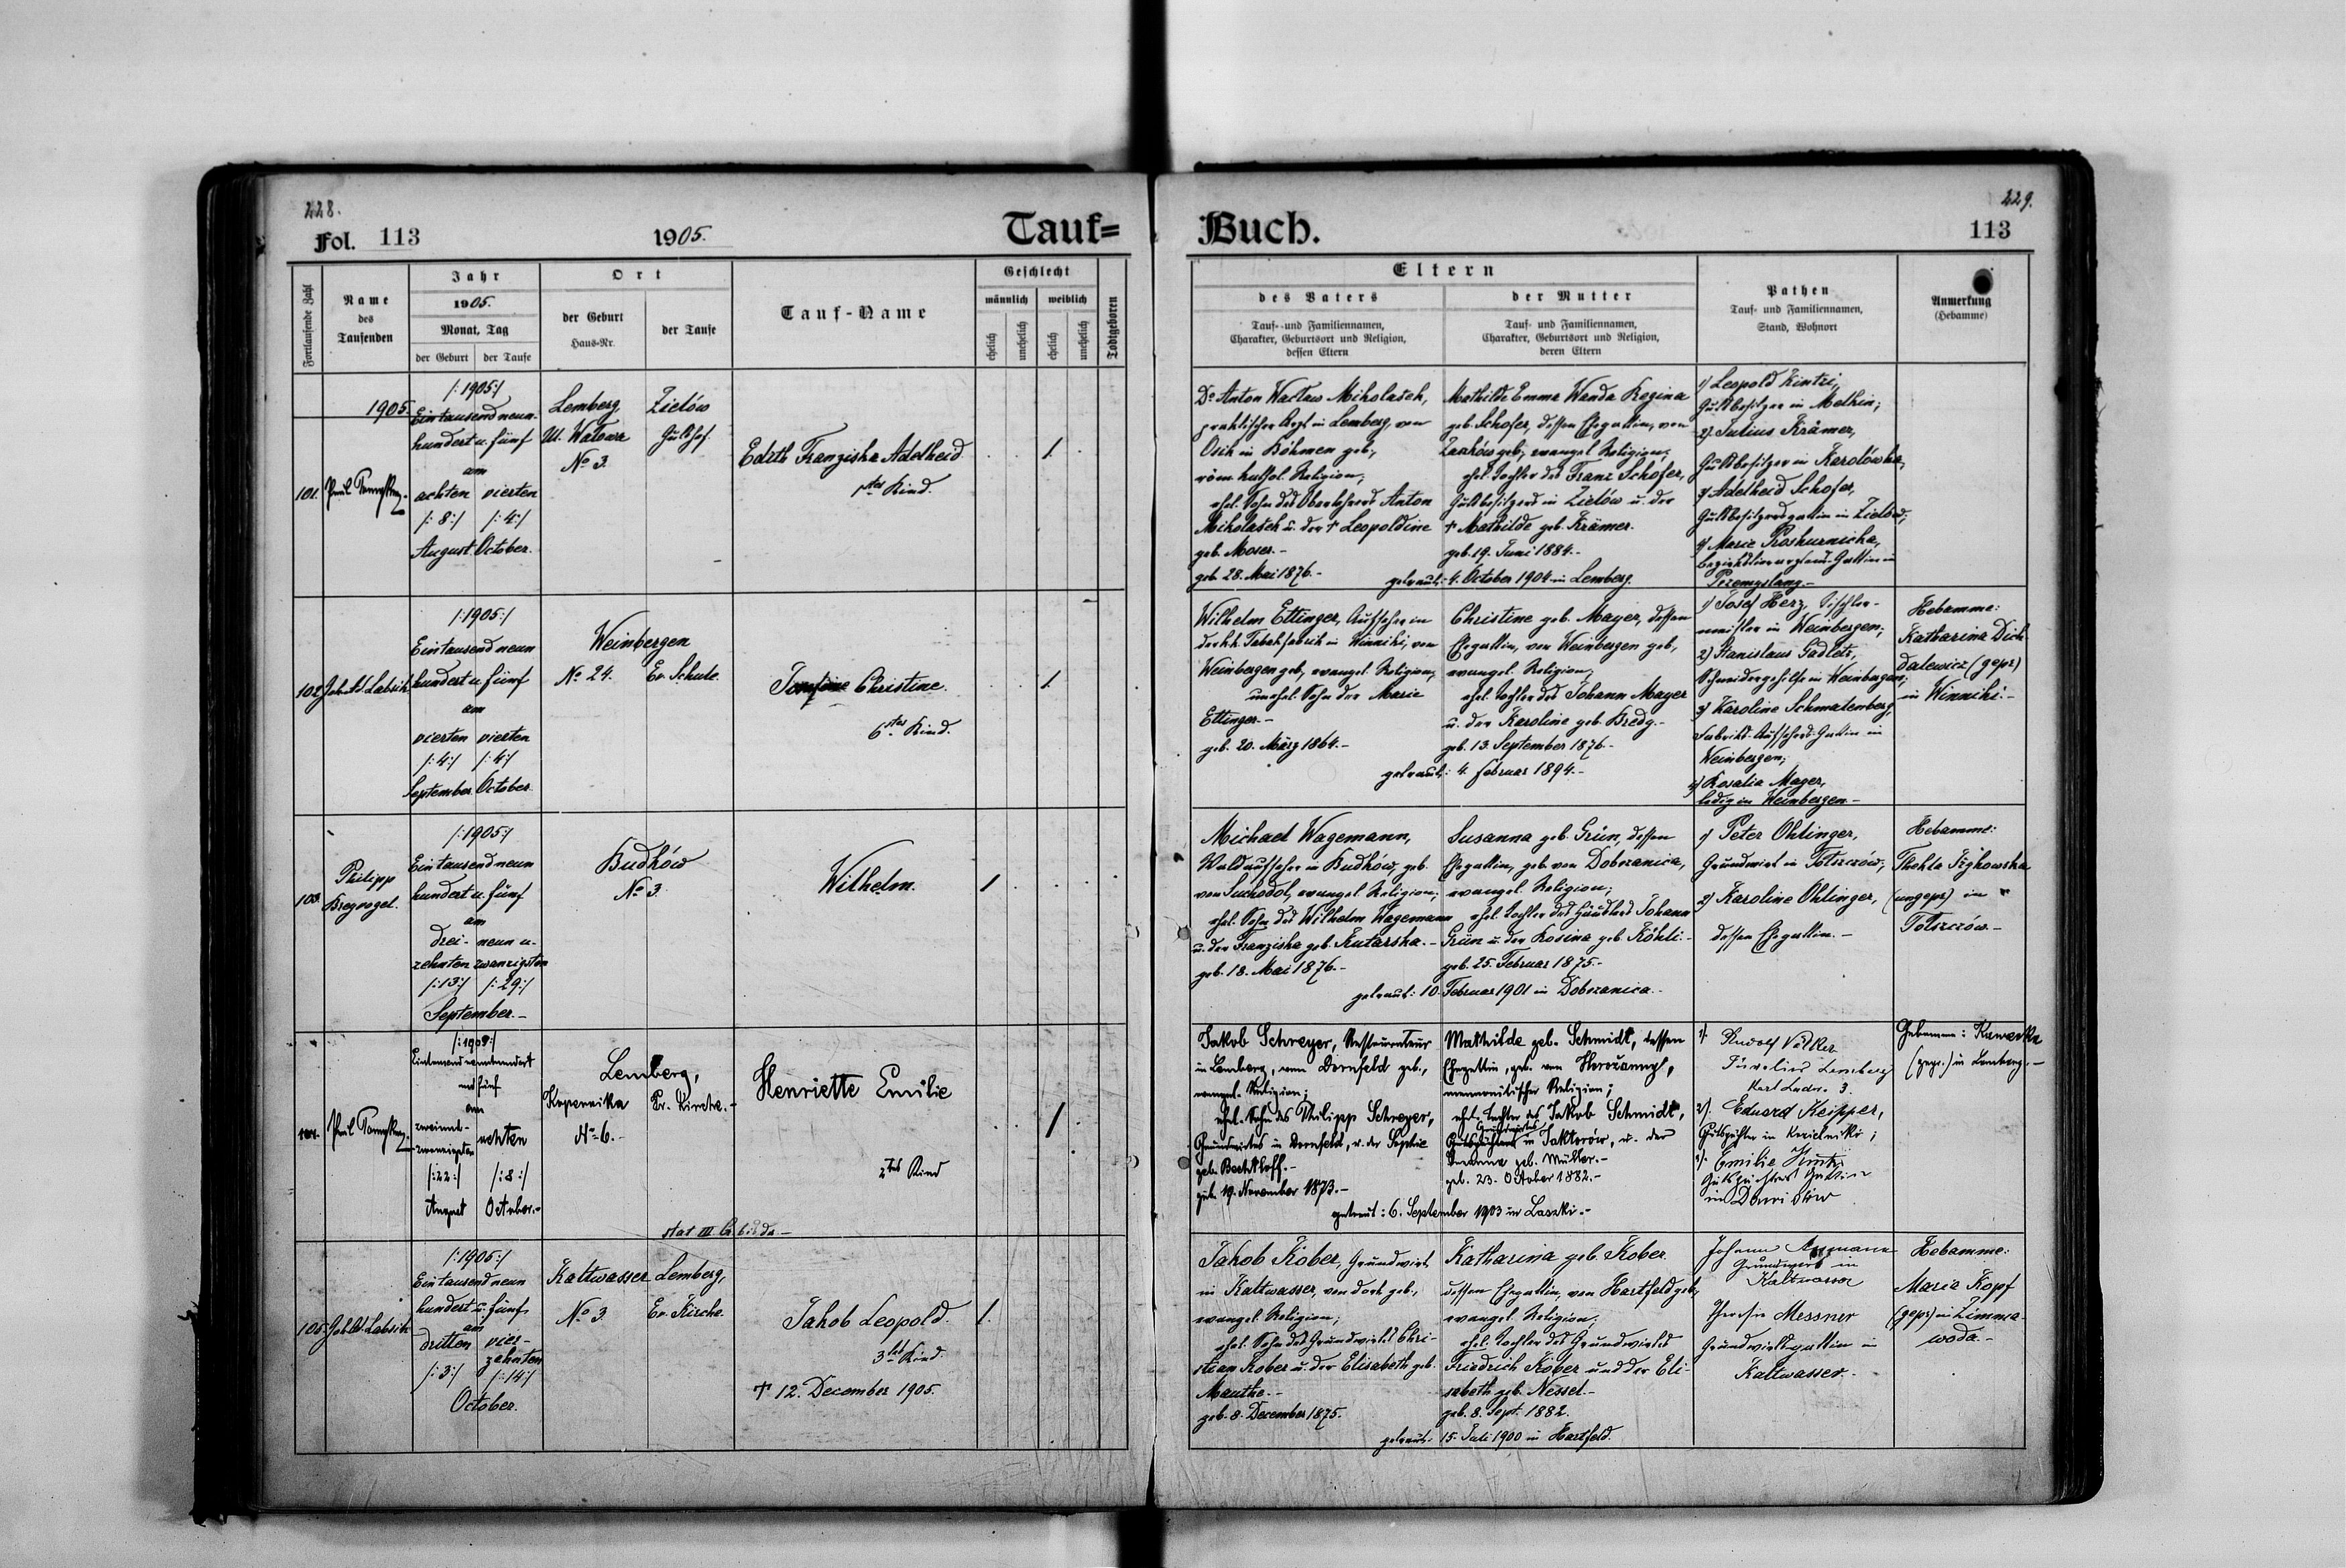 228.
Fol. 113
1905.
Tauf=
Buch.
229.
113
Fortlaufende Zahl
Name
des
Taufenden
Jahr
1905.
Monat, Tag
der Geburt
der Taufe
Ort
der Geburt
Haus-Nr.
der Taufe
Tauf-Name
Geschlecht
männlich
weiblich
ehelich
unehelich
ehelich
unehelich
Todtgeboren
Eltern
des Vaters
Tauf- und Familiennamen,
Charakter, Geburtsort und Religion,
dessen Eltern
der Mutter
Tauf- und Familiennamen,
Charakter, Geburtsort und Religion,
deren Eltern
Pathen
Tauf- und Familiennamen,
Stand, Wohnort
Anmerkung
(Hebamme)
1905.
101.
/:1905:/
Ein tausend neun-
hundert u. fünf
am
achten vierten
/:8:/ /:4:/
August October.
Lemberg,
Ul. Watowa
No 3.
Zielów
Gutshof.
Edith Franziska Adelheid
1tes Kind.
1.
Dr Anton Wacław Mikolasch,
praktischer Arzt in Lemberg, von
Osik in Böhmen geb.,
röm. kathol. Religion,
ehel. Sohn des Oberlehrers Anton
Mikolasch u. der † Leopoldine
geb. Moser.-
geb. 28. Mai 1876.-
Mathilde Emma Wanda Regina
geb. Schofer, dessen Ehegattin, von
geb., evangel. Religion;
ehel. Tochter des Franz Schofer,
Gutsbesitzers in Zielów u. der
† Mathilde geb. Krämer.
geb. 19. Juni 1884.-
getraut: 4. October 1904 in Lemberg.
1) Leopold Kintzi,
Gutsbesitzer in Melhin;
2) Julius Krämer,
Gutsbesitzer in Karolówka,
3) Adelheid Schofer,
Gutsbesitzersgattin in Zielów;
4) Marie Proskurnicka,
Gattin in
Przemyslany.-
102.
Joh. Ad. Labsik
/:1905:/
Ein tausend neun
hundert u. fünf
am
vierten vierten
/:4:/ /:4:/
September October.
Weinbergen
No 24. Ev. Schule.
Josefine Christine.
6tes Kind.
1.
Wilhelm Ettinger, Aufseher in
der kk. Tabakfabrik in Winniki, von
Weinbergen geb., evangel. Religion,
unehel. Sohn der Marie
Ettinger.-
geb. 20. März 1864.-
Christine geb. Mayer, dessen
Ehegattin, von Weinbergen geb.,
evangel. Religion;
ehel. Tochter des Johann Mayer
u. der Karoline geb. Bredy.-
geb. 13. September 1876.-
getraut: 4. Februar 1894.-
1) Josef Herz, Tischler-
meister in Weinbergen;
2) Stanislaus Gadlets,
Schneidergehilfe in Weinbergen;
3) Karoline Schmalenberg,
Fabriks-Aufsehers-Gattin in
Weinbergen;
4) Rosalia Mayer,
ledig in Weinbergen.-
Hebamme:
Katharina Dich
dalewicz (gepr.)
in Winniki.-
103.
Philipp
Bregvogel.
/:1905:/
Ein tausend neun
hundert u. fünf
am
drei- neun u-
zehnten zwanzigsten
/:13:/ /:29:/
September.-
Budków
No 3.
Wilhelm.
1
Michael Wagemann,
Waldaufseher in Budków, geb.
von Suchodol, evangel. Religion;
ehel. Sohn des Wilhelm Wagemann
u. der Franziska geb. Kutarska.-
geb. 18. Mai 1876.-
Susanna geb. Grün, dessen
Ehegattin, geb. von Dobrzanica,
evangel. Religion;
ehel. Tochter des Häuslers Johann
Grün u. der Rosina geb. Köhli.-
geb. 25. Februar 1875.-
getraut: 10. Februar 1901 in Dobrzanica.-
1) Peter Ohlinger,
Grundwirt in Tolszczów;
2) Karoline Ohlinger,
dessen Ehegattin.-
Hebamme:
Thekla
(ungepr.) in
Tolszczów.-
104.
/:1905:/
Eintausend neunhundert
und fünf
am
zweiund-
zwanzigsten achten
/:22:/ /:8:/
August October.-
Lemberg,
Kopernika Ev. Kirche.-
No 6.-
Henriette Emilie
2tes Kind
1
Jakob Schreyer, Restaurateur
in Lemberg, von Dornfeld geb.,
evangel. Religion;
ehel. Sohn des Philipp Schreyer,
Grundwirtes in Dornfeld, u. der Sophie
geb. Bechtloff.-
geb. 19. November 1873.-
Mathilde geb. Schmidt, dessen
Ehegattin, geb. von Horožanna,
mennonitischer Religion;
ehel. Tochter des Jakob Schmidt,
Grundwirtes
in Jaktorów, u. der
geb. Müller.-
geb. 23. October 1882.-
getraut: 6. September 1903 in Laszki.-
1). Rudolf
Juwelier Lemberg
3.
2). Eduard Keipper,
Gutspächter in Kozielniki;
3). Emilie Kintzi
Gutspächters Gattin
in
Hebamme: Kawacka
(gepr.) in Lemberg.-
105.
Joh. Ad. Labsik
/:1905:/
Ein tausend neun
hundert u. fünf
am
dritten vier-
zehnten
/:3:/ /:14:/
October.
Kaltwasser Lemberg,
No 3. Ev. Kirche.
Jakob Leopold.
3tes Kind.
† 12. December 1905.
1.
Jakob Kober, Grundwirt
in Kaltwasser, von dort geb.,
evangel. Religion;
ehel. Sohn des Grundwirts Chri-
stian Kober u. der Elisabeth geb.
Manthe.-
geb. 8. December 1875.
Katharina geb. Kober
dessen Ehegattin, von Hartfeld geb.,
evangel. Religion;
ehel. Tochter des Grundwirts
Friedrich Kober und der Eli-
sabeth geb. Nessel.-
geb. 8. Sept. 1882.
getraut: 15. Juli 1900 in Hartfeld.
Johann
Grundwirt in
Kaltwasser
Messner
Grundwirtsgattin in
Kaltwasser.-
Hebamme:
Maria Kopf
(gepr.) in Zimna-
woda.-